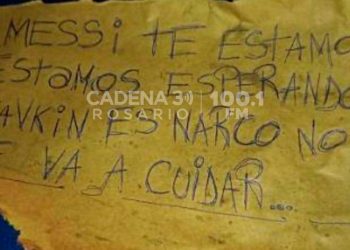 MESSI TE ESTAMO
ESTAMOS ESPERANDO
CADENA 3 100.1
ROSARIO FM
AVKIN ES NARCO NO
E VA A CUIDAR....